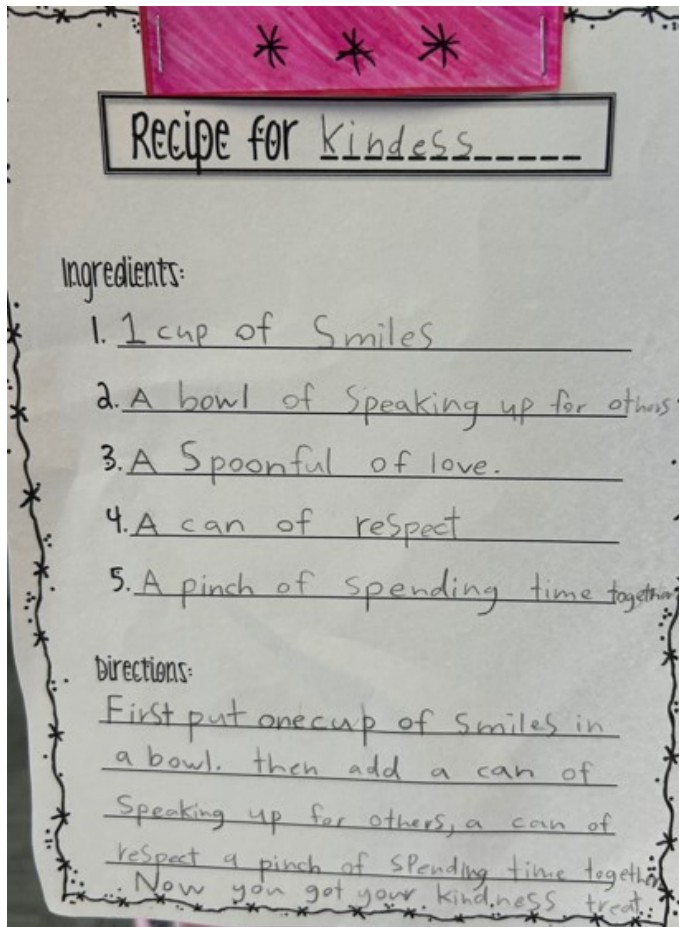 Recipe for Kindess
Ingredients:
1. 1 cup of Smiles
2. A bowl of Speaking up for others
3. A Spoonful of love.
4. A can of respect
5. A pinch of spending time together
Directions:
First put one cup of smiles in
a bowl. then add a can of
Speaking up for others, a can of
respect a pinch of spending time together
. Now you got your kindness treat.